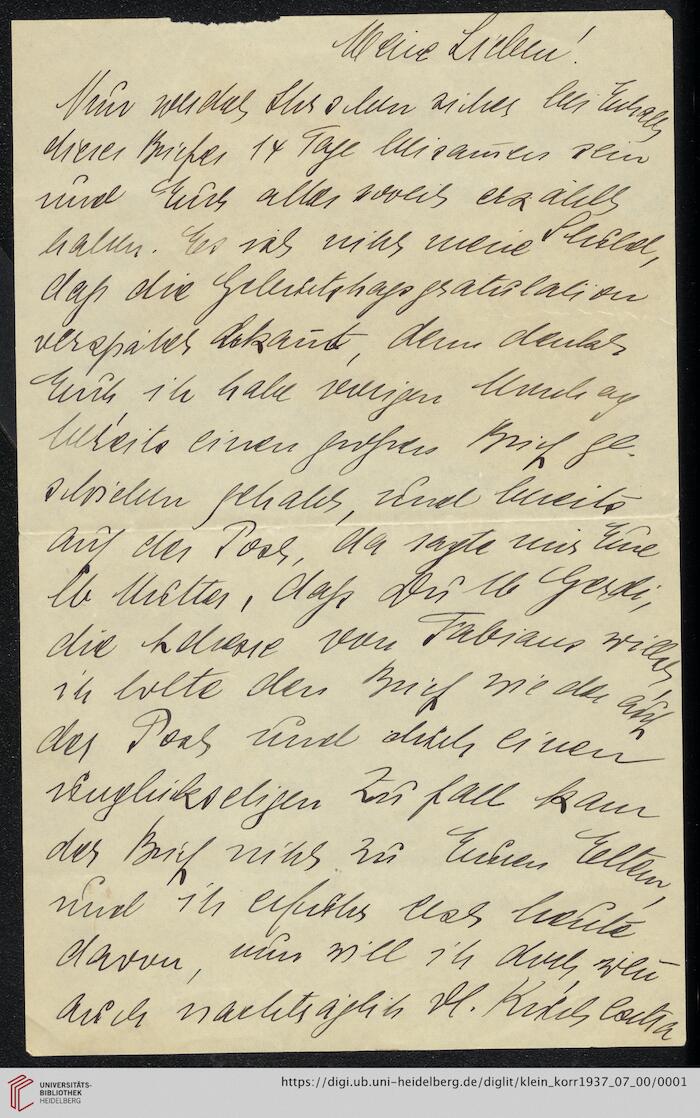 Meine Lieben!
Nun werdet Ihr schon sicher bei Erhalt
dieses Briefes 14 Tage beisamen sein
und Euch alles soweit erzählt
haben. Es ist nicht meine Schuld,
daß die Geburtstagsgratulation
verspätet ankomt, denn denkt
Euch ich habe vorigen Montag
bereits einen großen Brief ge-
schrieben gehabt, und bereits
auf der Post, da sagte mir Eure
lb Mutter, daß Du lb Gerdi,
die Adresse von Fabians willst,
ich holte den Brief wieder auf
der Post und durch einen
unglückseligen Zufall kam
der Brief nicht zu Euren Eltern,
und ich erfuhr erst heute
davon, nun will ich doch, wen
auch nachträglich dl.
UNIVERSITÄTS-
BIBLIOTHEK
HEIDELBERG
https://digi.ub.uni-heidelberg.de/diglit/klein_korr1937_07_00/0001